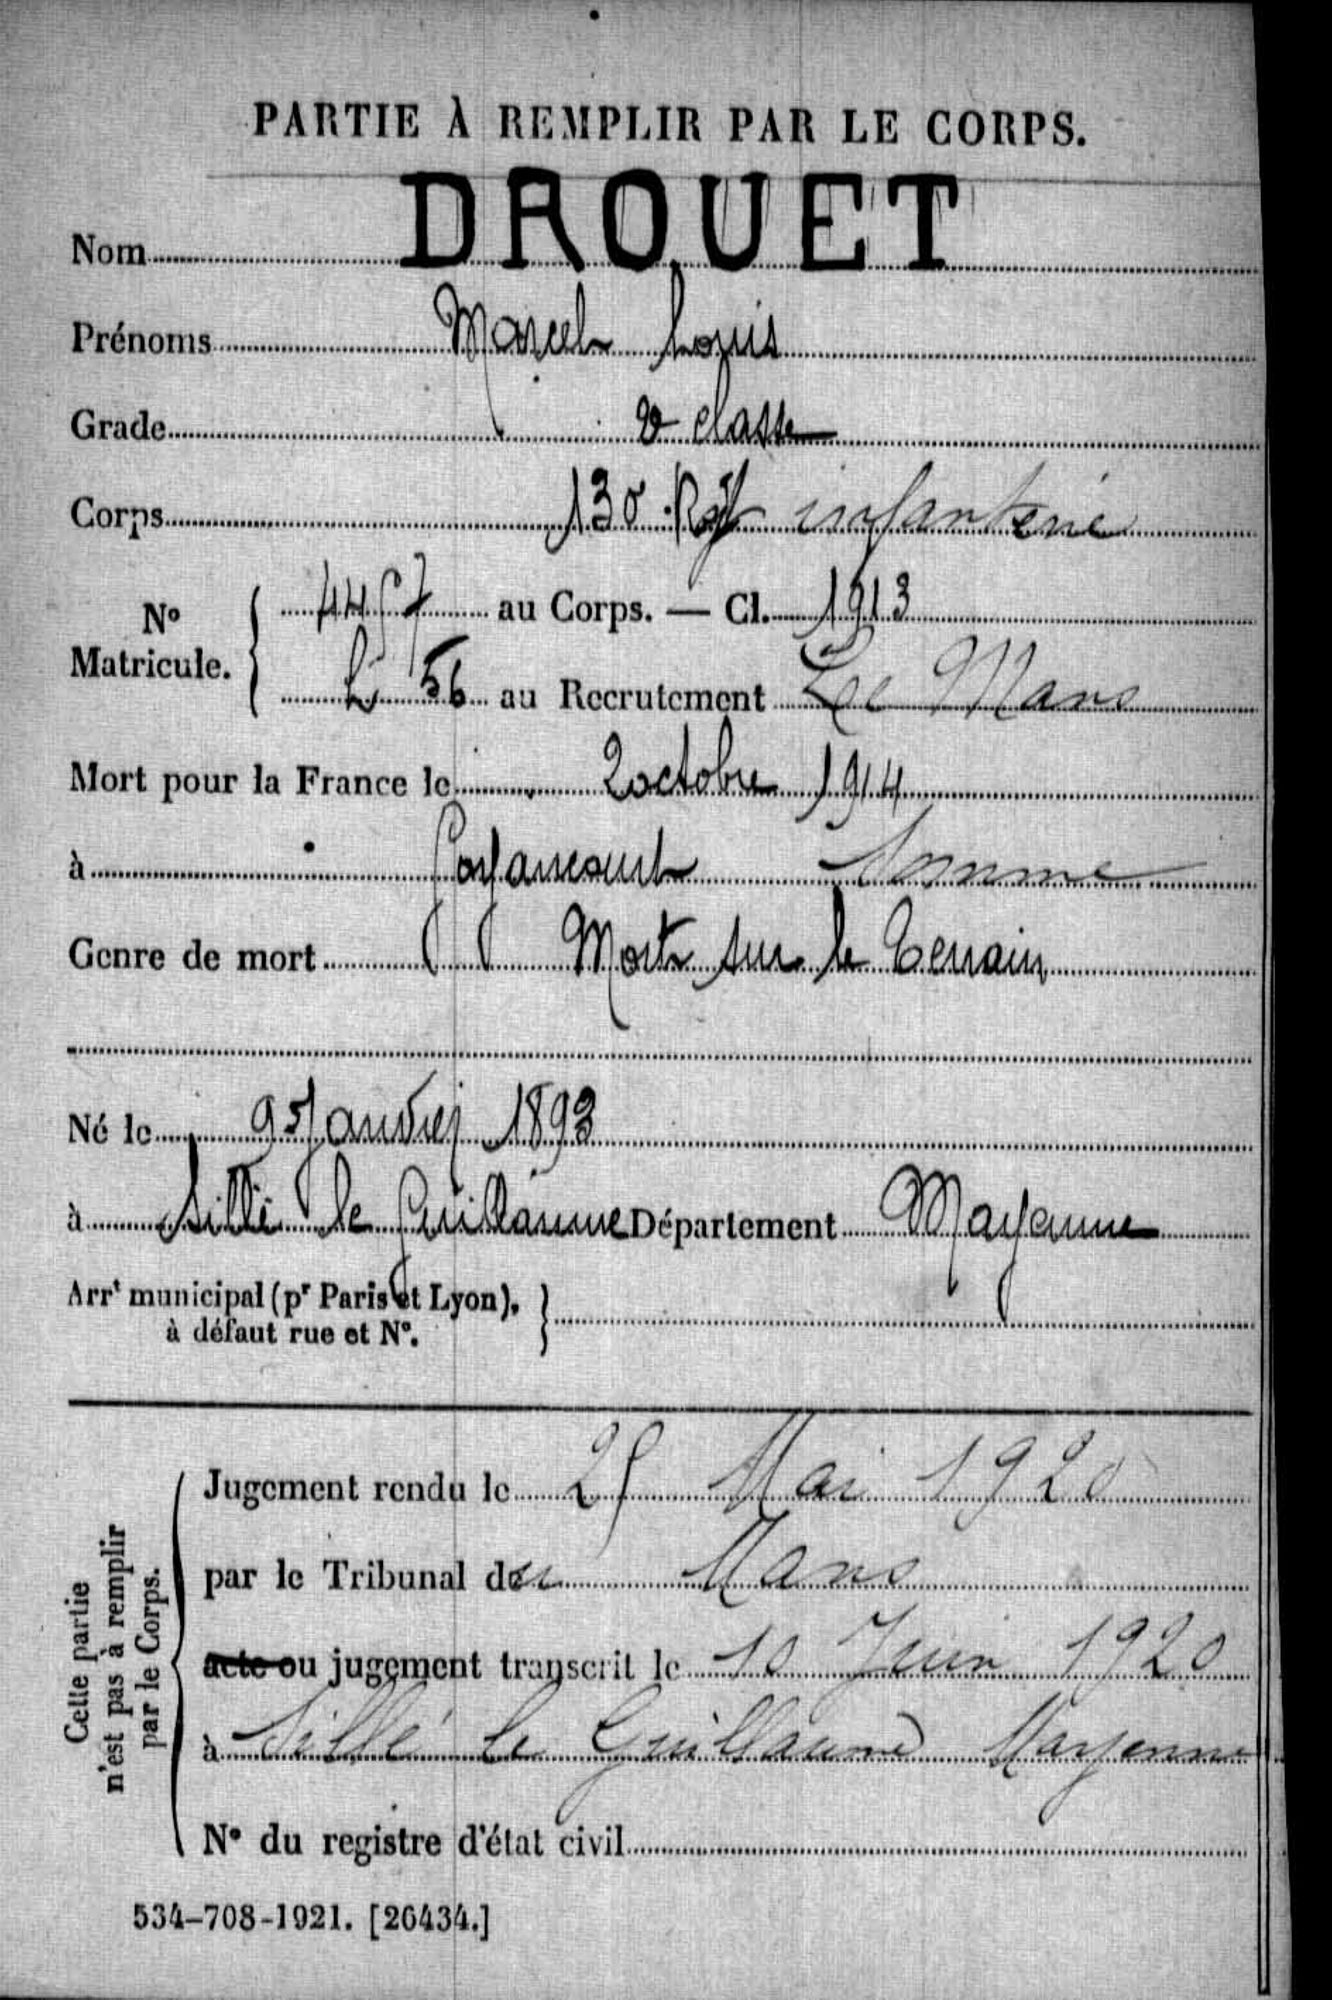 PARTIE À REMPLIR PAR LE CORPS.
Nom DROUET
Prénoms Marcel Louis
Grade 2e classe
Corps 130 Rgt infanterie
No Matricule. 4457 au Corps. — Cl. 1913
56 au Recrutement Le Mans
Mort pour la France le 2 octobre 1914
à Goyancourt Somme
Genre de mort Mort sur le terrain
Né le 9 Janvier 1893
à Sillé le Guillaume Département Mayenne
Arrt municipal (pr Paris et Lyon),
à défaut rue et No.
Cette partie n'est pas à remplir par le Corps.
Jugement rendu le 25 Mai 1920
par le Tribunal du Mans
acte ou jugement transcrit le 10 Juin 1920
à Sillé le Guillaume Mayenne
No du registre d'état civil
534-708-1921. [26434.]